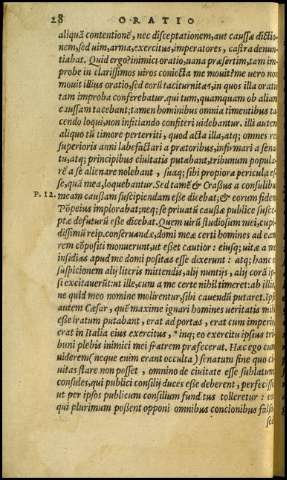 28 ORATIO
aliquā contentionē, nec disceptationem, aut caussæ dictio
nem, sed uim, arma, exercitus, imperatores, castra denun
tiabat. Quid ergo? inimici oratio, uana præsertim, tam im
probe in clarissimos uiros coniecta me mouit? me uero non
mouit illius oratio, sed eorū taciturnitas, in quos illa oratio
tam improba conferebatur, qui tum, quamquam ob alias
caussas tacebant; tamen hominibus omnia timentibus ta
cendo loqui, non infitiando confiteri uidebantur. illi autem
aliquo tū timore perterriti, quod acta illa, atq; omnes res
superioris anni labefactari a prætoribus, infirmari a sena
tu, atq; principibus ciuitatis putabant, tribunum popula-
rē a se alienare nolebant, suaq; sibi propiora pericula es
se, quā mea, loquebantur. Sed tamē & Crassus a consulibus
P. 12. meam caussam suscipiendam esse dicebat; & eorum fidem
Pōpeius implorabat; neq; se priuatū caussæ publice suscē
ptæ defuturū esse dicebat. Quem uirū studiosum mei, cupi
dissimū reip. conseruandæ, domi meæ certi homines ad eam
rem cōpositi monuerunt, ut esset cautior: eiusq; uitæ a me
insidias apud me domi positas esse dixerunt: atq; hanc ei
suspicionem alij literis mittendis, alij nuntijs, alij corā ip
si excitauerūt: ut ille, cum a me certe nihil timeret: ab illis,
ne quid meo nomine molirentur, sibi cauendū putaret. Ipse
autem Cæsar, quē maxime ignari homines ueritatis mihi
esse iratum putabant, erat ad portas, erat cum imperio:
erat in Italia eius exercitus, *inq; eo exercitu ipsius tri
buni plebis inimici mei fratrem præfecerat. Hæc ego cum
uiderem (neque enim erant occulta) senatum sine quo ci
uitas stare non posset, omnino de ciuitate esse sublatum:
consules, qui publici consilij duces esse deberent, perfecisse
ut per ipsos publicum consilium funditus tolleretur: eos
qui plurimum possent opponi omnibus concionibus falso
sed